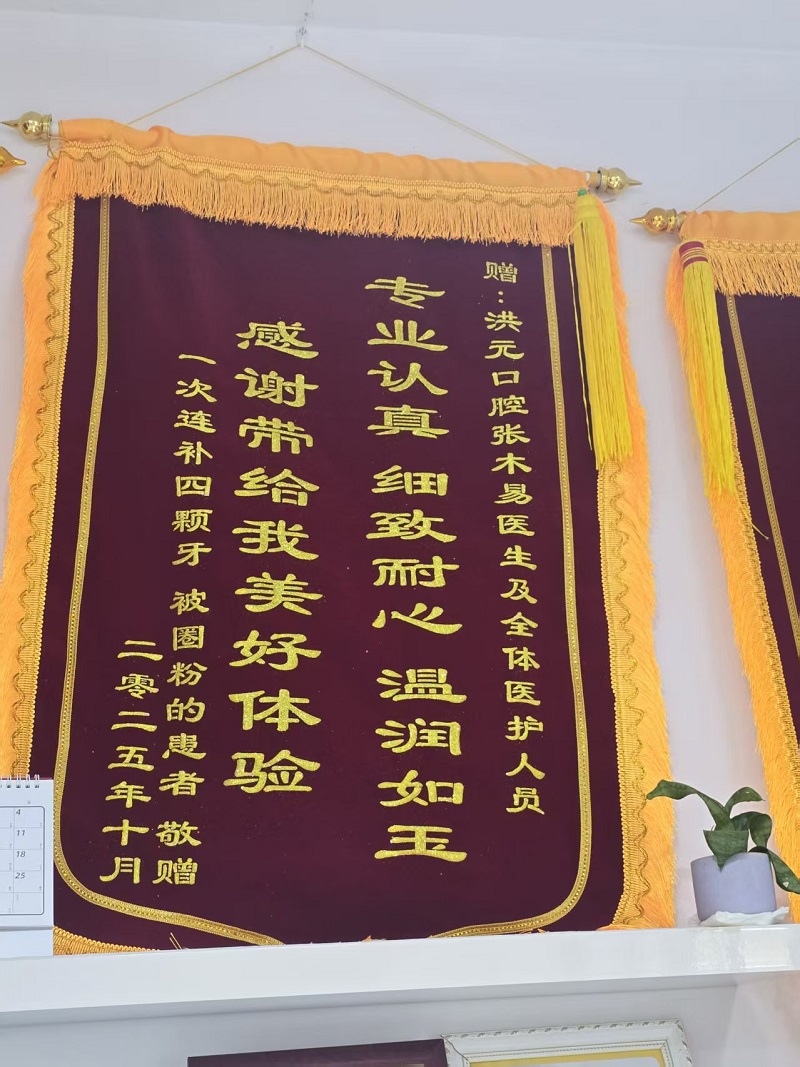 赠：洪元口腔张木易医生及全体医护人员
专业认真 细致耐心 温润如玉
感谢带给我美好体验
一次连补四颗牙 被圈粉的患者 敬赠
二零二五年十月
4
11
18
25